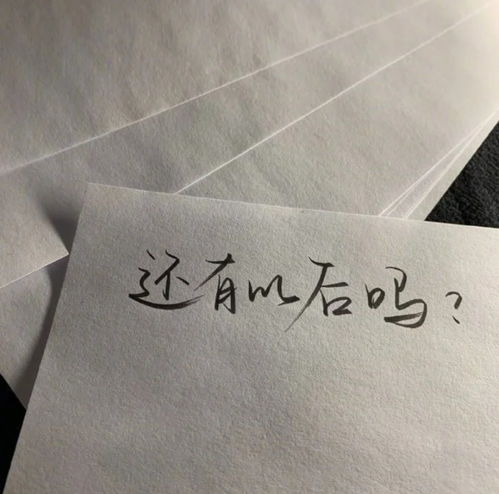 还有以后吗?